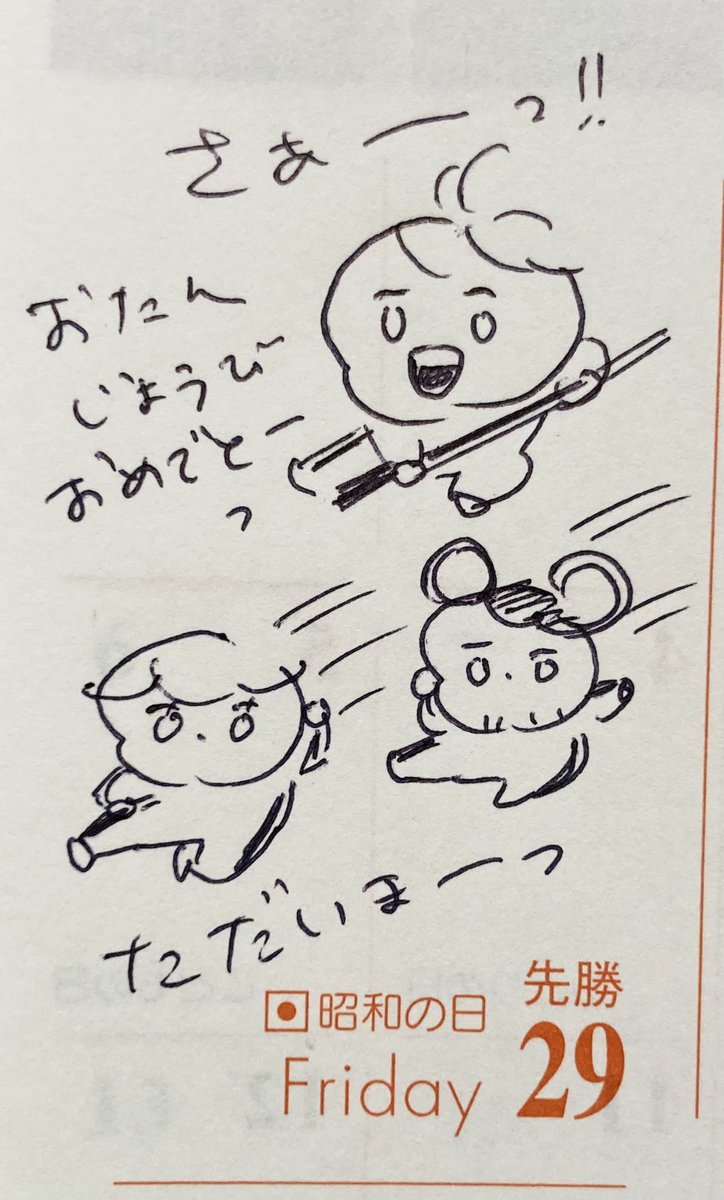 さぁーっ!!
おたん
じょうび
おめでとー
っ
ただいまーっ
先勝
昭和の日
29
Friday